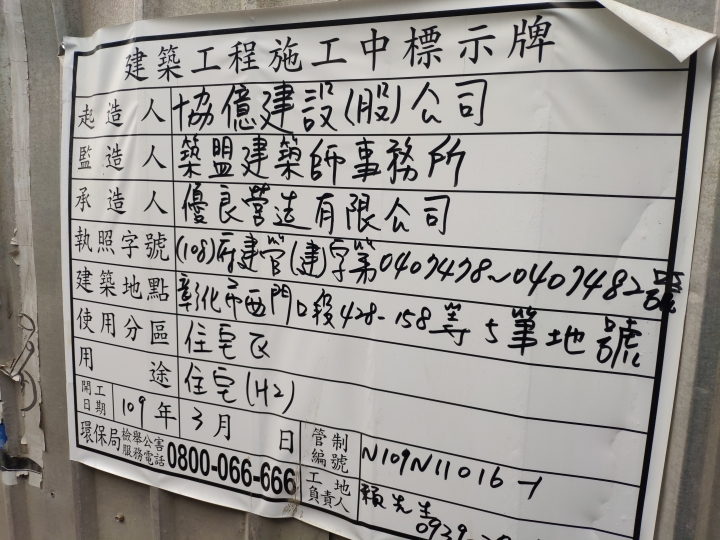 建築工程施工中標示牌
起造人 協億建設(股)公司
監造人 築盟建築師事務所
承造人 優良營造有限公司
執照字號 (108)府建管(建)字第0407478~0407482號
建築地點 彰化市西門口段428-158等5筆地號
使用分區 住宅區
用途 住宅(H2)
開工日期 109年3月 日
管制編號 N109N11016-1
環保局 檢舉公害服務電話 0800-066-666
工地負責人 賴先生
0939-